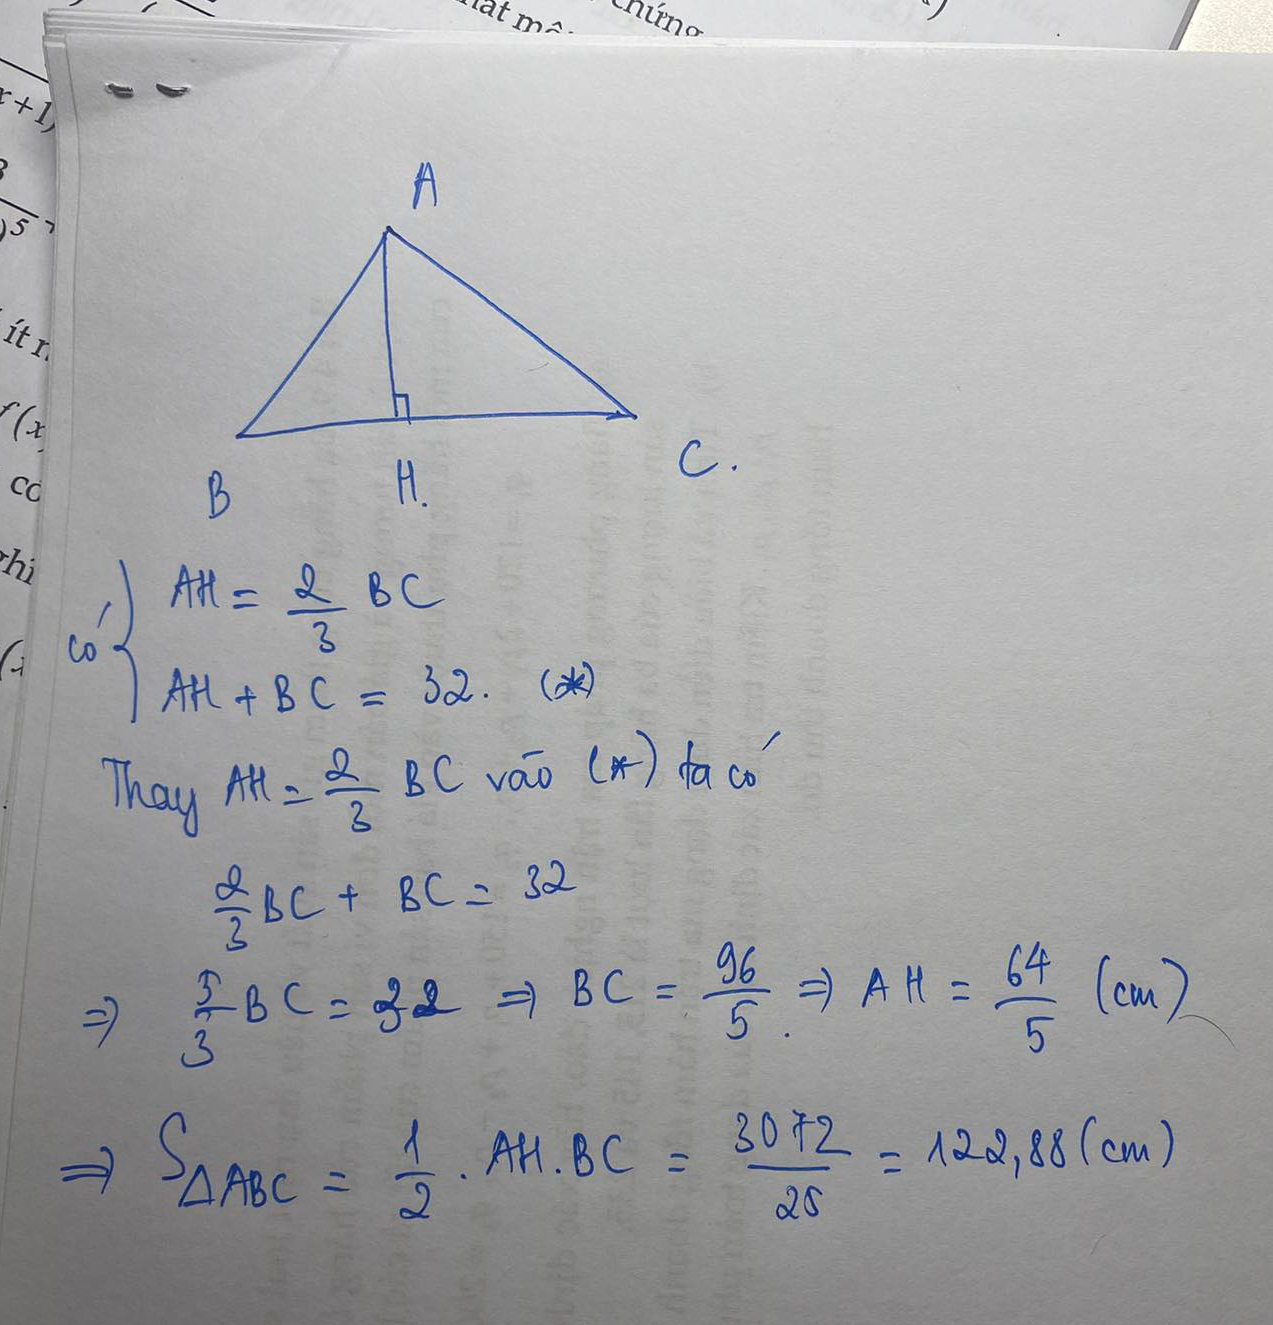 hất mộ
chứng
x+1)
3
)5
ít n
f(x
co
ghi
A
B
H.
C.
có { AH = 2/3 BC
AH + BC = 32. (*)
Thay AH = 2/3 BC vào (*) ta có
2/3 BC + BC = 32
⇒ 5/3 BC = 32 ⇒ BC = 96/5. ⇒ AH = 64/5 (cm)
⇒ S△ABC = 1/2 . AH.BC = 3072/25 = 122,88 (cm)